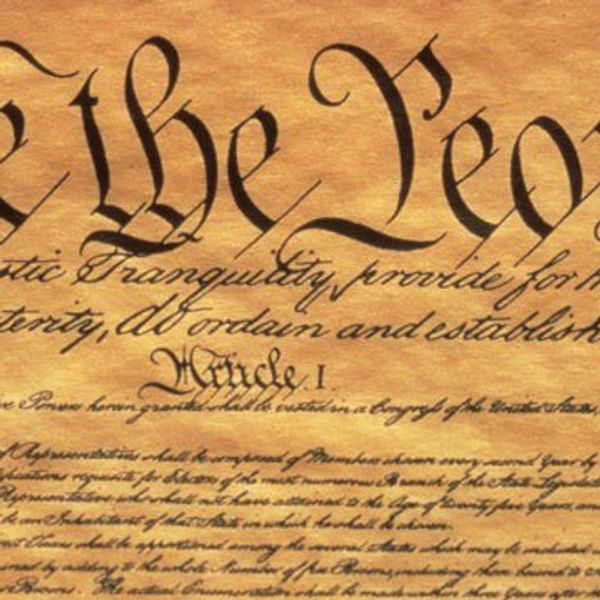 e the Peo
stic Tranquility, provide for th
terity, do ordain and establish
Article. I.
ve Powers herein granted shall be vested in a Congress of the United States,
of Representatives shall be composed of Members chosen every second Year by
requisite for Electors of the most numerous Branch of the State Legisla
Representative who shall not have attained to the Age of twenty five Years, an
be an Inhabitant of that State in which he shall be chosen.
Taxes shall be apportioned among the several States which may be included
by adding to the whole Number of free Persons, including those bound to
Persons. The actual Enumeration shall be made within three Years after th